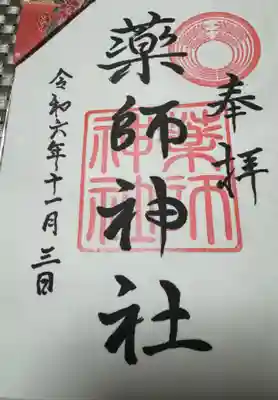 奉拝
薬師神社
薬師
神社
令和六年十一月三日